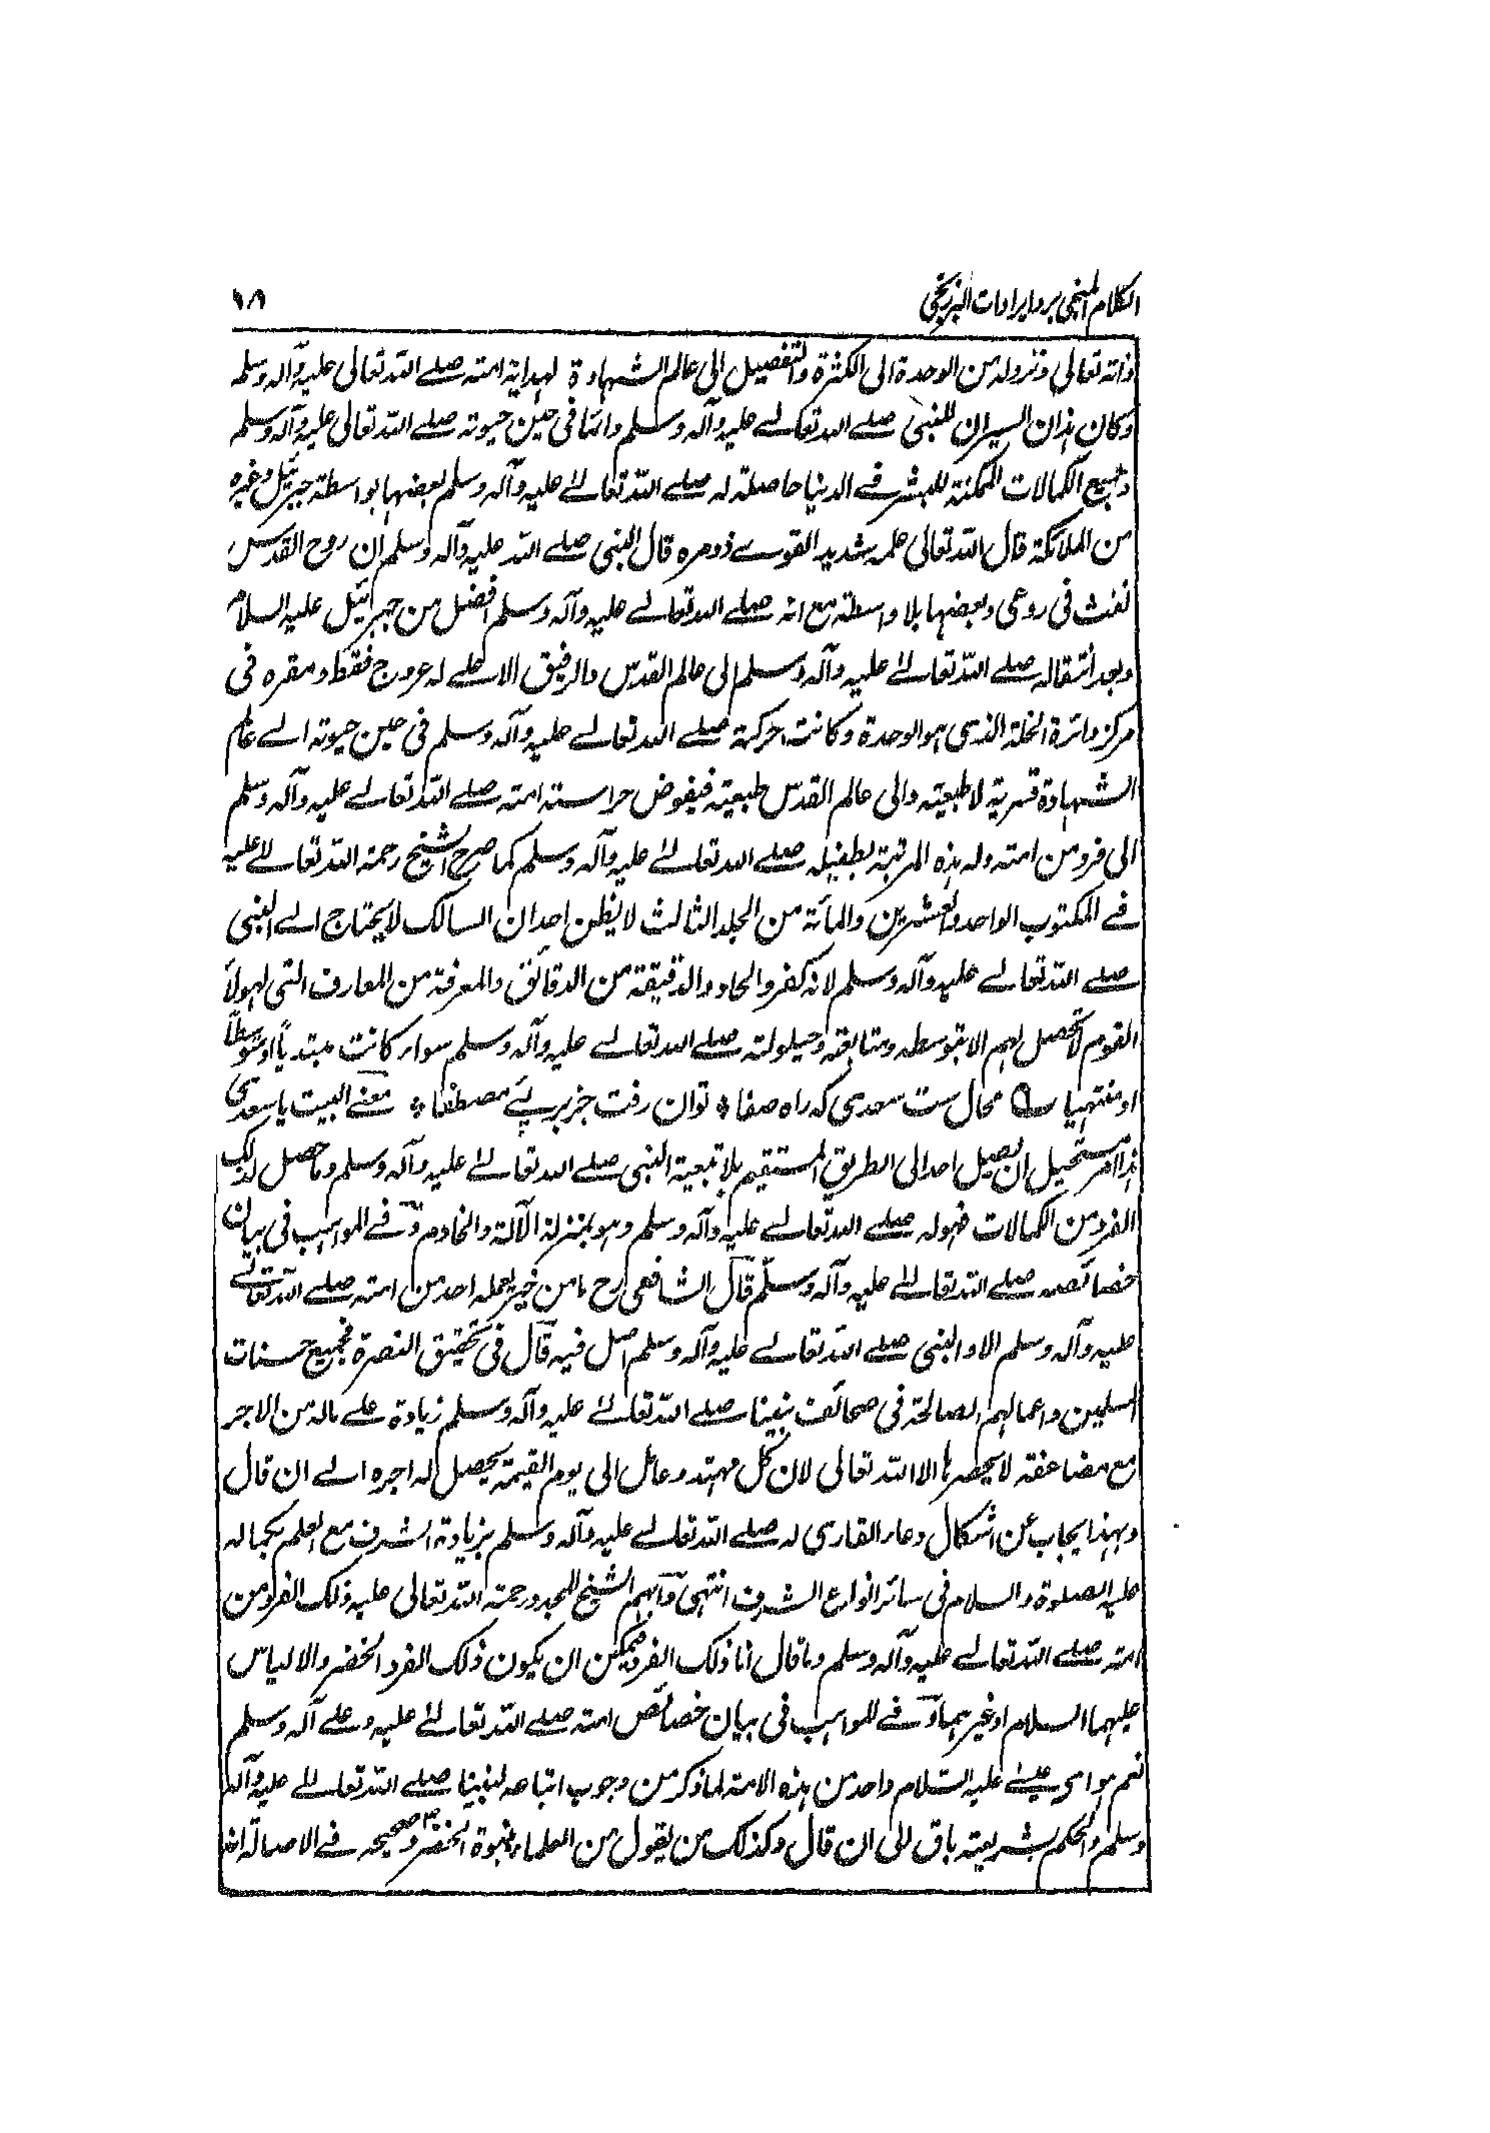 الكلام المنجي برد ايرادات البرزنجي ١٨
ذاته تعالى ونزوله من الوحدة الى الكثرة والتفصيل الى عالم الشهادة لهداية امته صلے الله تعالى عليه وآله وسلم
وكان هذان السيران للنبي صلے الله تعالے عليه وآله وسلم دائما في حين حيوته صلے الله تعالى عليه وآله وسلم
وجميع الكمالات الممكنة للبشر فے الدنيا حاصلة له صلے الله تعالے عليه وآله وسلم بعضها بواسطة جبرئيل وغيره
من الملائكة قال الله تعالى علمه شديد القوے ذو مرة قال النبي صلے الله عليه وآله وسلم ان روح القدس
نفث في روعي وبعضها بلا واسطة مع انه صلے الله تعالے عليه وآله وسلم افضل من جبرائيل عليه السلام
وبعد انتقاله صلے الله تعالے عليه وآله وسلم الى عالم القدس والرفيق الاعلے له عروج فقط ومقره في
مركز دائرة الخلة الذي هو الوحدة وكانت حركته صلے الله تعالے عليه وآله وسلم في حين حيوته الے عالم
الشهادة قسرية لا طبعيته والى عالم القدس طبعيته فيفوض حراسته امته صلے الله تعالے عليه وآله وسلم
الى فرد من امته وله هذه المرتبة بطفيله صلے الله تعالے عليه وآله وسلم كما صرح الشيخ رحمة الله تعالے عليه
فے المكتوب الواحد والعشرين والمائة من الجلد الثالث لا يظن احد ان السالك لا يحتاج الے النبي
صلے الله تعالے عليه وآله وسلم لانه كفر والحاد والدقيقة من الدقائق والمعرفة من المعارف التي لهولآ
القوم لا تحصل لهم الا بتوسطه ومتابعته وحيلولته صلے الله تعالے عليه وآله وسلم سواء كانت مبتديًا او متوسطًا
او منتهيا ؎ محال ست سعدي كه راه صفا ٭ توان رفت جز بر پئے مصطفا ٭ معنے البيت يا سعدي
هذا امر مستحيل ان يصيل احد الى الطريق المستقيم بلا تبعية النبي صلے الله تعالے عليه وآله وسلم وما حصل لذلك
الفرد من الكمالات فهو له صلے الله تعالے عليه وآله وسلم وهو بمنزلة الآلة والخادم وفے المواهب في بيان
خصائصه صلے الله تعالے عليه وآله وسلم قال الشافعي رح ما من خير يعمله احد من امته صلے الله تعالے
عليه وآله وسلم الا والنبي صلے الله تعالے عليه وآله وسلم اصل فيه قال في تحقيق النصرة فجميع حسنات
المسلمين واعمالهم الصالحة في صحائف نبينا صلے الله تعالے عليه وآله وسلم زيادة علے ماله من الاجر
مع مضاعفة لا يحصرها الا الله تعالى لان كل مهتد وعامل الى يوم القيمة يحصل له اجره الے ان قال
وبهذا يجاب عن اشكال دعاء القاري له صلے الله تعالے عليه وآله وسلم بزيادة الشرف مع العلم بكماله
عليه الصلوة والسلام في سائر انواع الشرف انتهى وابهم الشيخ المجدد رحمة الله تعالى عليه ذلك الفرد من
امته صلے الله تعالے عليه وآله وسلم وما قال انا ذلك الفرد فيمكن ان يكون ذلك الفرد الخضر والالياس
عليهما السلام او غيرهما وفے المواهب في بيان خصائص امته صلے الله تعالے عليه وعلے آله وسلم
نعم هو اي عيسے عليه السلام واحد من هذه الامة لما ذكر من وجوب اتباعه لنبينا صلے الله تعالے عليه وآله
وسلم والحكم بشريعته باق الى ان قال وكذلك من يقول من العلماء بنبوة الخضر وصححه فے الاصالة انه